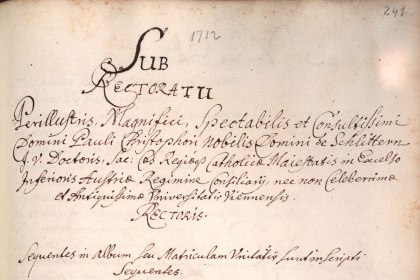 1712
241
SUB
RECTORATU
Perillustris, Magnifici, Spectabilis et Consultissimi
Domini Pauli Christophori Nobilis Domini de Schlittern
J. V. Doctoris, Sac: Caes Regiaeq Catholicae Maiestatis in Excelso
Inferioris Austriae Regimine Consiliarij, nec non Celeberrimae
et Antiquissimae Universitatis Viennensis.
RECTORIS.
Sequentes in Album seu Matriculam Vnitatis sunt inscripti
Sequentes.